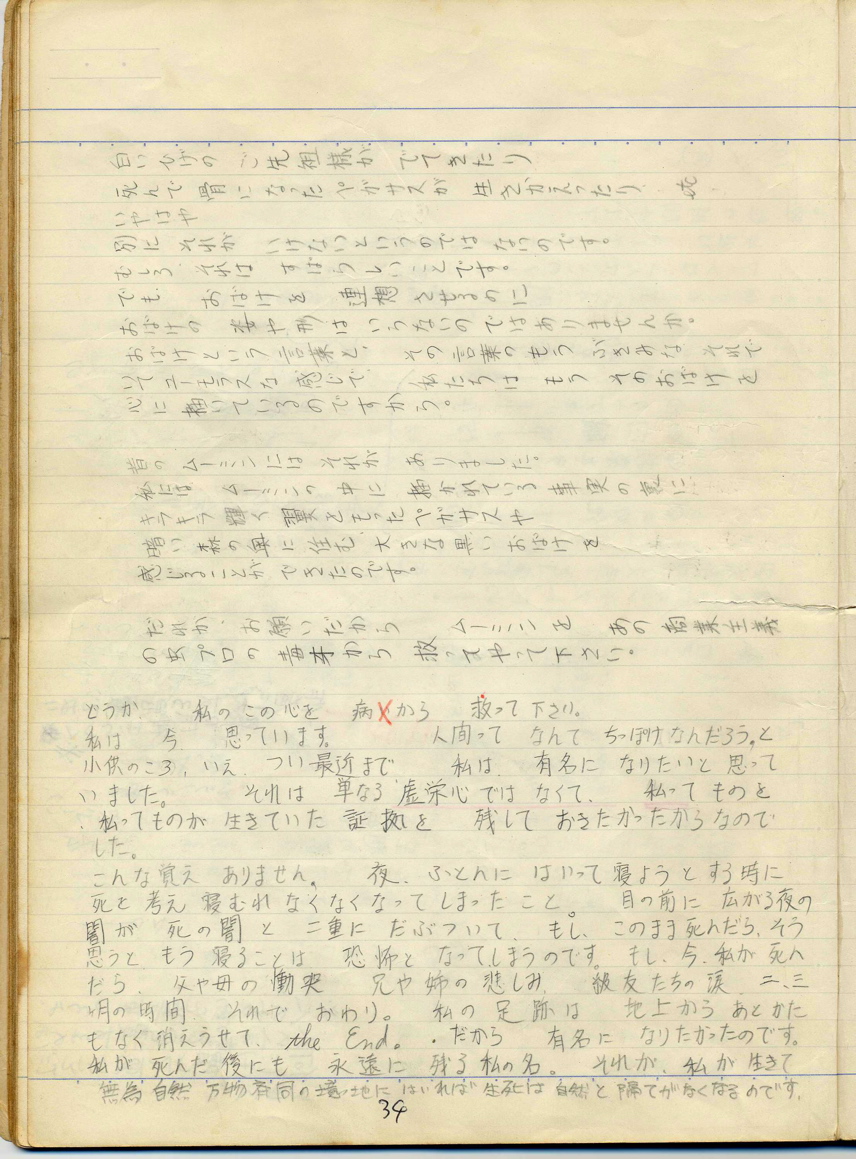 白いひげの ご先祖様が でてきたり
死んで骨になったペガサスが 生きかえったり、
いやはや
別に それが いけないというのでは ないのです。
むしろ それは すばらしいことです。
でも、おばけを 連想 させるのに
おばけの 姿や形は いらないのではありませんか。
おばけという 言葉と、その言葉のもつ ぶきみな それで
いてユーモラスな 感じで、私たちは もう そのおばけを
心に描いているのですから。
昔の ムーミンには それが ありました。
私には ムーミンの 中に 描かれている 事実の裏に
キラキラ 輝く 翼をもったペガサスや
暗い森の奥に住む 大きな黒いおばけを
感じることができたのです。
だれか、お願いだから ムーミンを あの 商業主義
の虫プロの毒牙から 救ってやって下さい。
どうか、 私のこの心を 病から 救って下さい。
私は 今 思っています。 人間って なんて ちっぽけなんだろう。と
小供のころ、いえ、つい最近まで 私は、有名に なりたいと 思って
いました。 それは 単なる 虚栄心では なくて、 私って ものを
、私ってものが 生きていた 証拠を 残して おきたかったからなので
した。
こんな覚え ありません。 夜、ふとんに はいって 寝ようと する時に
死を 考え 寝むれ なくなくなって しまった こと。 目の前に 広がる夜の
闇が 死の闇 と 二重に だぶついて、もし、このまま死んだら、そう
思うと、もう 寝ることは 恐怖と なってしまうのです。もし、今、私が 死ん
だら、父や母の 慟哭 兄や姉の 悲しみ、級友たちの 涙、二、三
ヶ月の時間、それで おわり。 私の 足跡は 地上から あとかた
もなく 消えうせて、the End。・だから 有名に なりたかったのです。
私が 死んだ 後にも 永遠に 残る 私の名。 それが、私が 生きて
無為自然 万物斉同の境地に はいれば 生死は 自然と 隔てがなくなるのです。
34